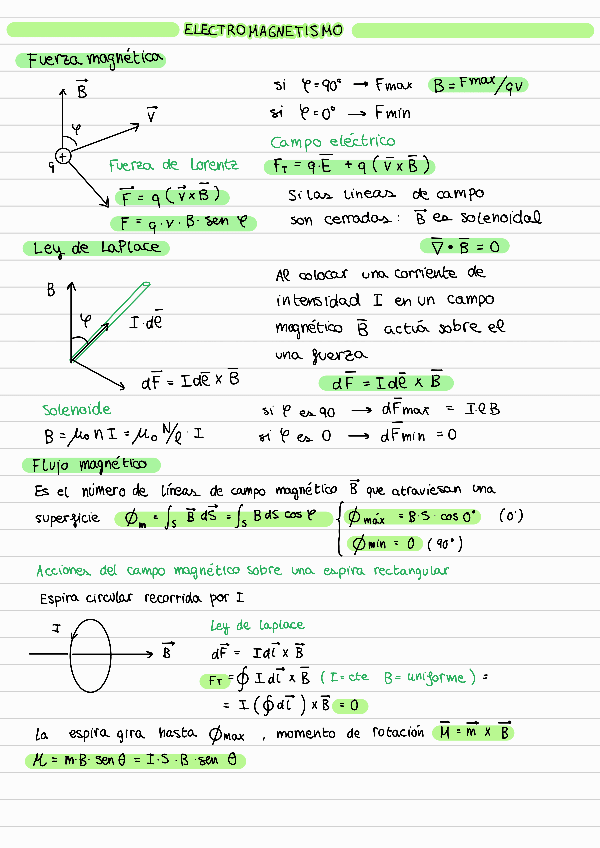 ELECTROMAGNETISMO
Fuerza magnética
B⃗
V⃗
φ
q
+
si φ=90° → Fmax B = Fmax/qv
si φ=0° → Fmin
Campo eléctrico
Fuerza de Lorentz F_T = q·E̅ + q (V⃗×B⃗)
F⃗ = q (V⃗×B⃗)
F = q·v·B·sen φ
Si las líneas de campo
son cerradas: B⃗ es solenoidal
∇̅ • B̅ = 0
Ley de LaPlace
B
φ
I·dl̅
dF̅ = Idl̅ × B̅
Al colocar una corriente de
intensidad I en un campo
magnético B̅ actúa sobre el
una fuerza
dF̅ = Idl̅ × B̅
Solenoide
B = μ₀ n I = μ₀ N/l · I
si φ es 90 → dF̅max = I·l B
si φ es 0 → dF̅min = 0
Flujo magnético
Es el número de líneas de campo magnético B⃗ que atraviesan una
superficie ϕₘ = ∫ₛ B⃗ dS⃗ = ∫ₛ B ds cos φ
ϕmáx = B·S·cos 0° (0°)
ϕmin = 0 (90°)
Acciones del campo magnético sobre una espira rectangular
Espira circular recorrida por I
I
B⃗
Ley de laplace
dF⃗ = Idl⃗ × B⃗
F_T = ∮ I dl⃗ × B⃗ (I=cte B= uniforme) =
= I (∮ dl⃗) × B⃗ = 0
La espira gira hasta ϕmax, momento de rotación M⃗ = m⃗ × B⃗
M = m·B·sen θ = I·S·B·sen θ